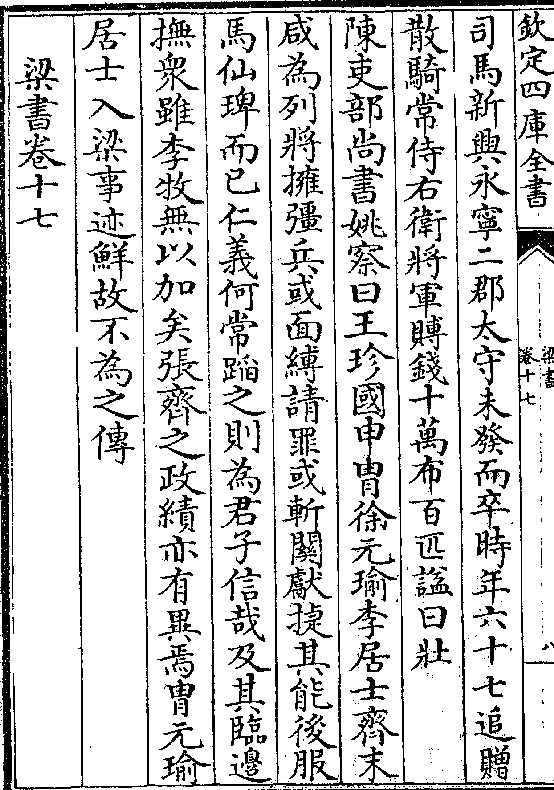 欽定四庫全書
梁書
卷十七
八
司馬新興永寧二郡太守未發而卒時年六十七追贈
散騎常侍右衛將軍賻錢十萬布百匹諡曰壯
陳吏部尚書姚察曰王珍國申胄徐元瑜李居士齊末
咸為列將擁彊兵或面縛請罪或斬關獻捷其能後服
馬仙琕而已仁義何常蹈之則為君子信哉及其臨邊
撫衆雖李牧無以加矣張齊之政績亦有異焉胄元瑜
居士入梁事迹鮮故不為之傳
梁書卷十七